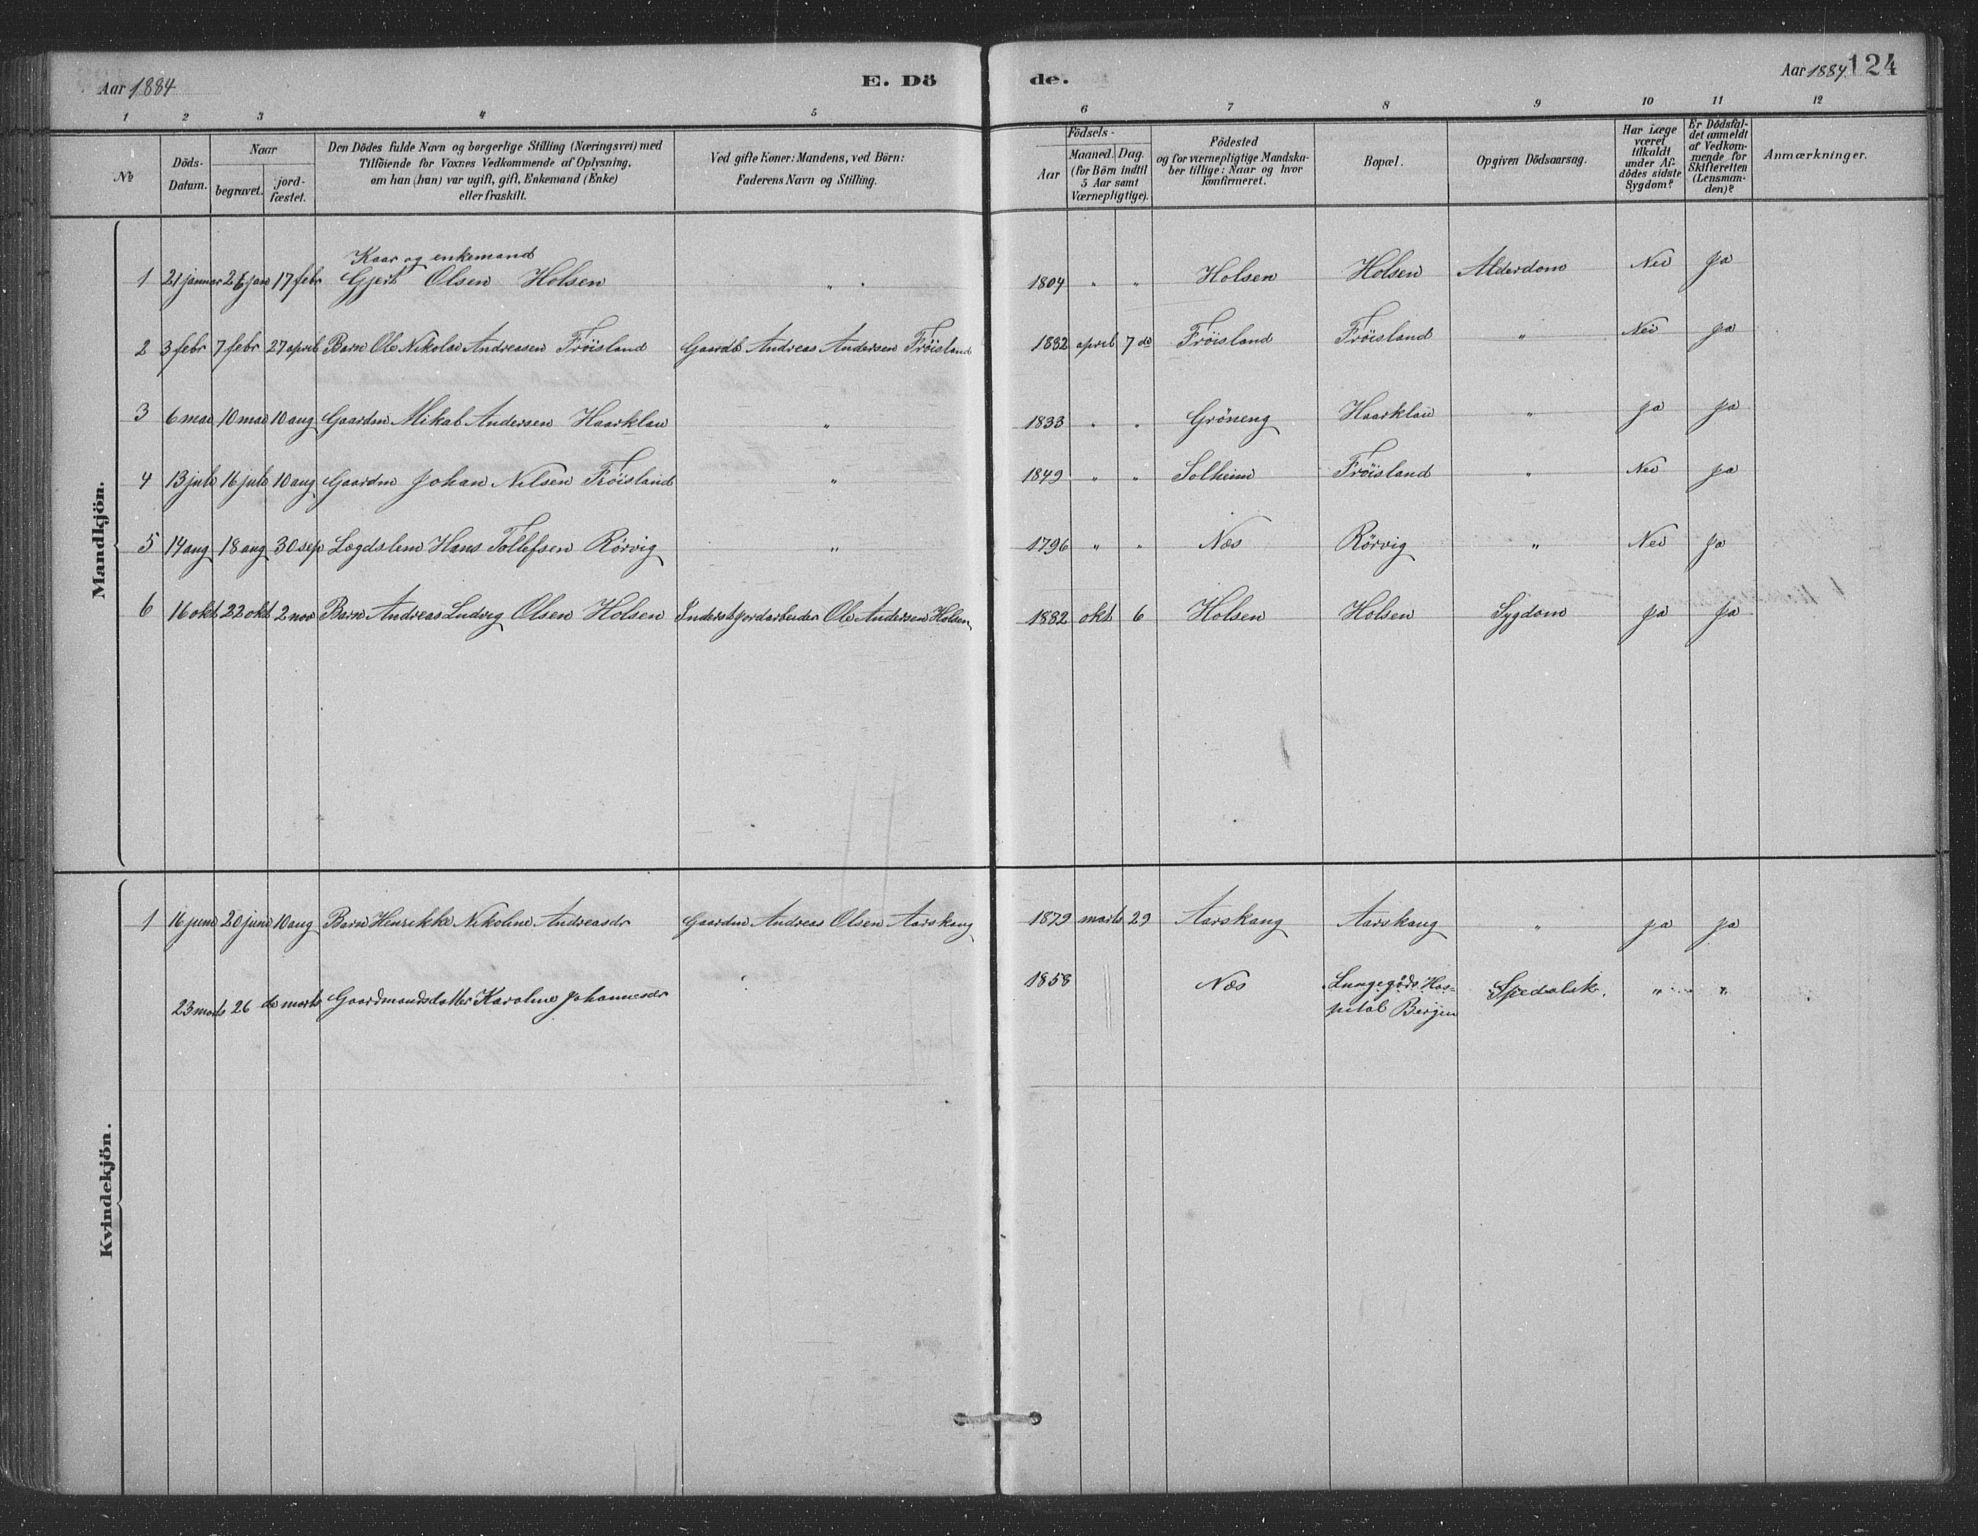 Aar 1884
E. Dö
de.
Aar 1884. 124
1 2 3 4 5 6 7 8 9 10 11 12
No
Döds-Datum.
Naar
begravet.
jord-fæstet.
Den Dödes fulde Navn og borgerlige Stilling (Næringsvei) med
Tilföiende for Voxnes Vedkommende af Oplysning,
om han (hun) var ugift, gift, Enkemand (Enke)
eller fraskilt.
Ved gifte Koner: Mandens, ved Börn:
Faderens Navn og Stilling.
Födsels-
Aar
Maaned. Dag.
(for Börn indtil
5 Aar samt
Værnepligtige).
Födested
og for værnepligtige Mandska-
ber tillige: Naar og hvor
konfirmeret.
Bopæl.
Opgiven Dödsaarsag.
Har Læge
været
tilkaldt
under Af-
dödes sidste
Sygdom?
Er Dödsfal-
det anmeldt
af Vedkom-
mende for
Skifteretten
(Lensman-
den)?
Anmærkninger.
Mandkjön.
Kaar og enkemand
1 21 januar 26 jan 17 febr Gjert Olsen Holsen " 1804 " " Holsen Holsen Alderdom Nei Ja
2 3 febr 7 febr 27 april Barn Ole Nikolai Andreasen Fröisland Gaardb Andreas Andersen Fröisland 1882 april 7 de Fröisland Fröisland " Nei Ja
3 6 mai 10 mai 10 aug Gaardm Mikal Andersen Haarklau " 1833 " " Gröneng Haarklau " Ja Ja
4 13 juli 16 juli 10 aug Gaardm Johan Nilsen Fröisland " 1849 " " Solheim Fröisland " Nei Ja
5 14 aug 18 aug 30 sep Lægdslem Hans Tollefsen Rörvig " 1796 " " Næs Rörvig " Nei Ja
6 16 okt 22 okt 2 nov Barn Andreas Ludvig Olsen Holsen Inderst jordarbeider Ole Andersen Holsen 1882 okt 6 Holsen Holsen Sygdom Ja Ja
Kvindekjön.
1 16 juni 20 juni 10 aug Barn Henrikke Nikoline Andreasdr Gaardm Andreas Olsen Aarskaug 1879 marts 29 Aarskaug Aarskaug " Ja Ja
23 marts 26 de marts Gaardmandsdatter Karoline Johannesdr 1858 Næs Lungegöds Hos-
pital Bergen Spedalsk. " "